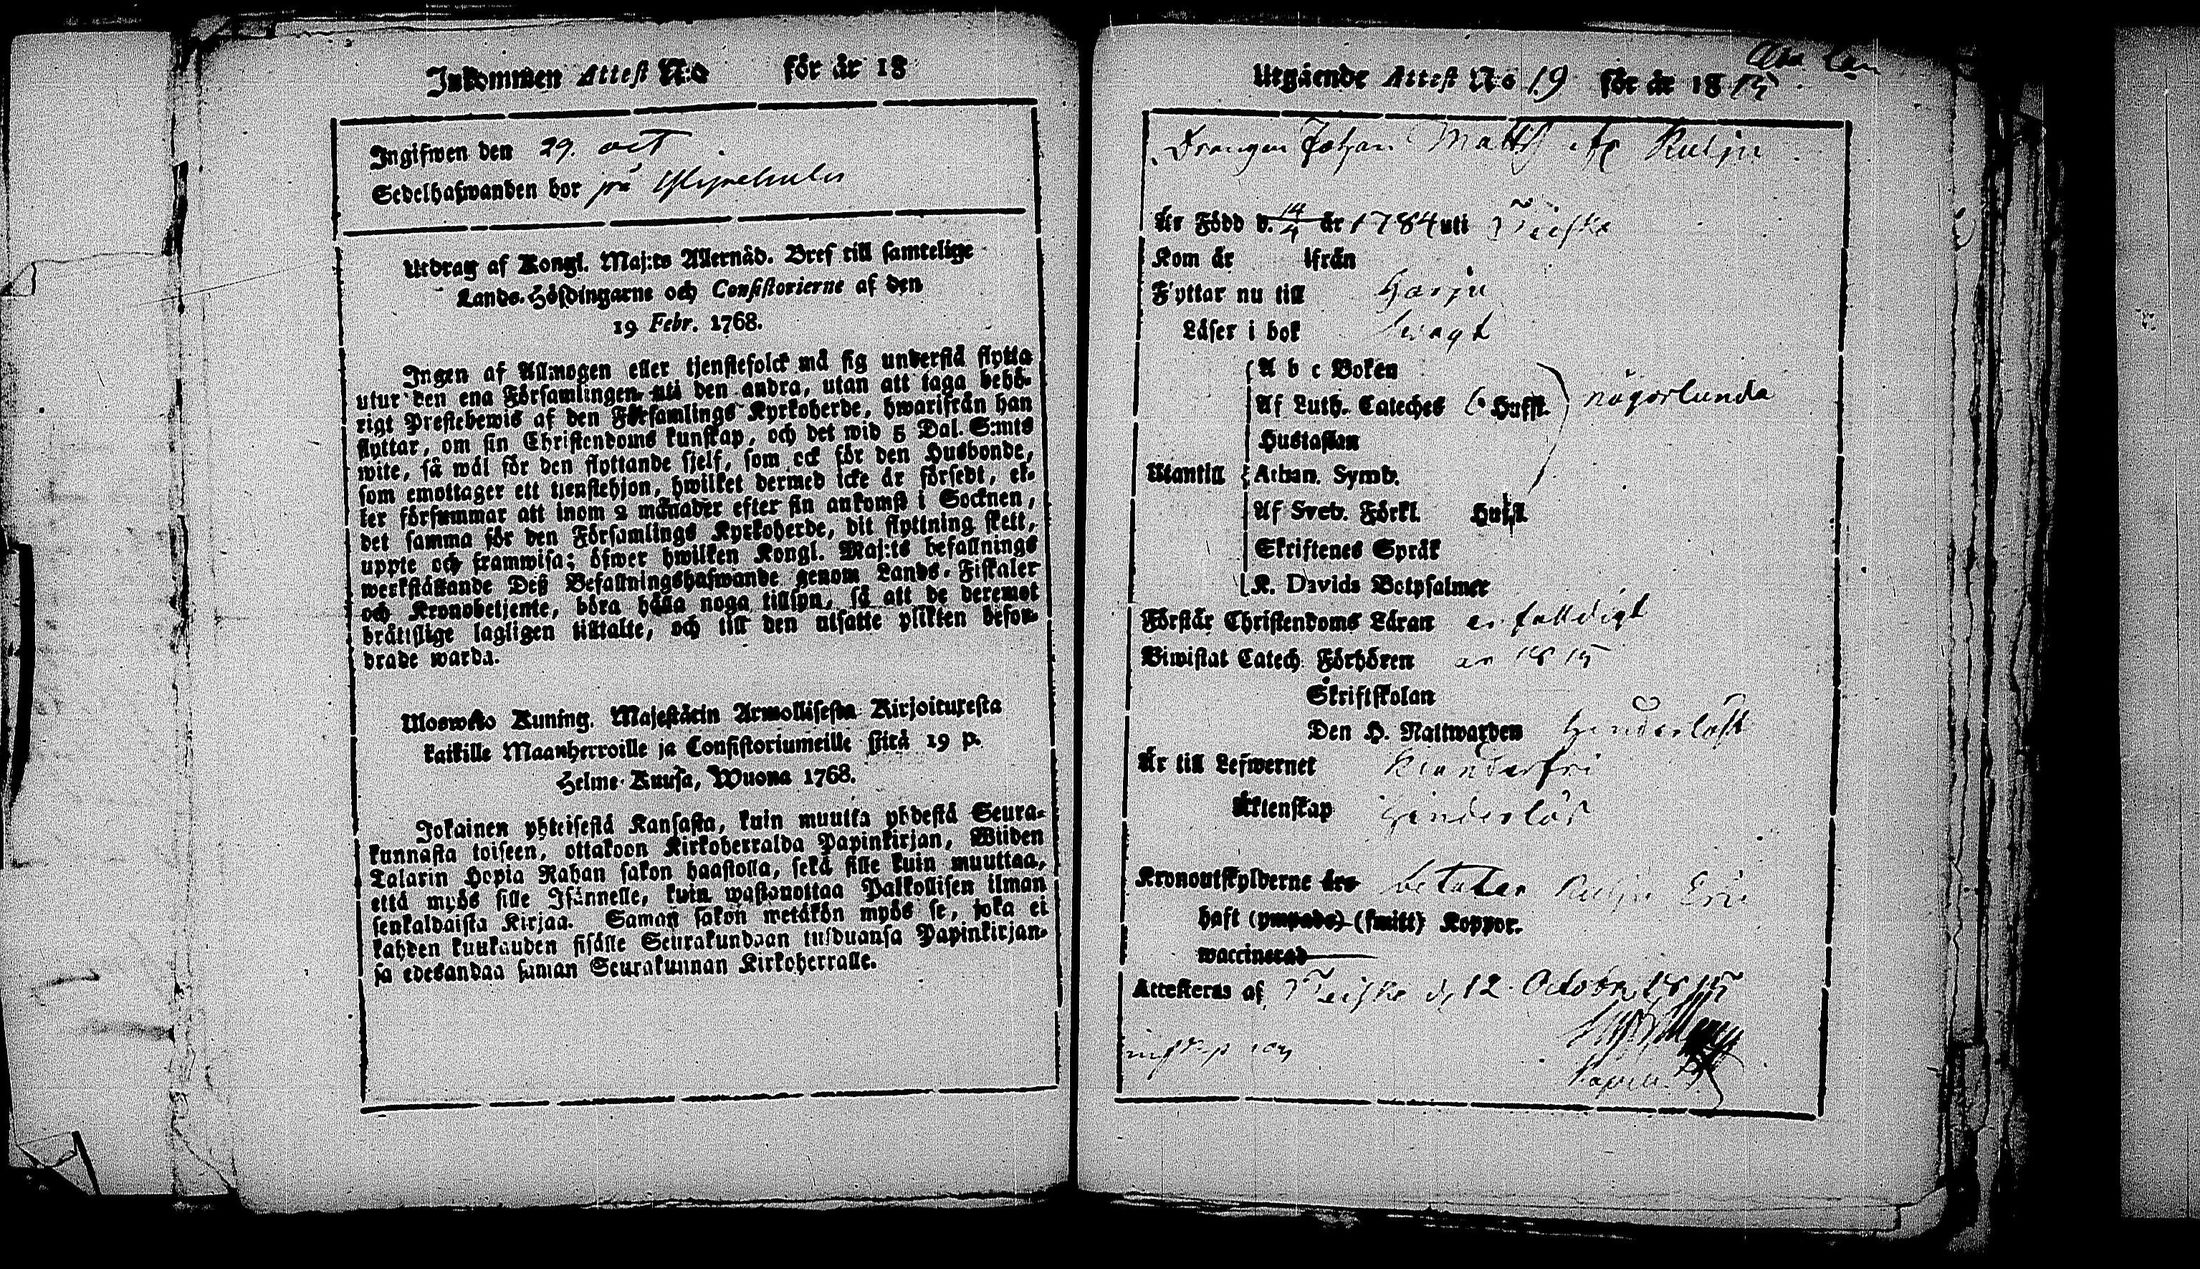 Inkommen Attest N:o för år 18
Ingifwen den 29. oct
Sedelhafwanden bor på
Utdrag af Kongl. Maj:ts Allernåd. Bref till samtelige
Lands-Höfdingarne och Consistorierne af den
19 Febr. 1768.
Ingen af Allmogen eller tjenstefolck må sig understå flytta
utur den ena Församlingen uti den andra, utan att taga behö-
rigt Prestebewis af den Församlings Kyrkoherde, hwarifrån han
flyttar, om sin Christendoms kunskap, och det wid 5 Dal. S:mts
wite, så wäl för den flyttande sjelf, som ock för den Husbonde,
som emottager ett tjenstehjon, hwilket dermed icke är försedt, el-
ler försummar att inom 2 månader efter sin ankomst i Socknen,
det samma för den Församlings Kyrkoherde, dit flyttning skett,
uppte och framwisa; öfwer hwilken Kongl. Maj:ts befallnings
werkställande Deß Befallningshafwande genom Lands-Fiskaler
och Kronobetjente, böra hålla noga tillsyn, så att de deremot
bråtislige lagligen tilltalte, och till den utsatte plikten befor-
drade warda.
Uloswito Kuning. Majestätin Armollisesta Kirjoituxesta
kaikille Maanherroille ja Consistoriumeille siitä 19 p.
Helme-Kuusa, Wuona 1768.
Jokainen yhteisestä Kansasta, kuin muutta yhdestä Seura-
kunnasta toiseen, ottakoon Kirkoherralda Papinkirjan, Wiiden
Talarin Hopia Rahan sakon haastolla, sekä sille kuin muuttaa,
että myös sille Isännelle, kuin wastanottaa Palkollisen ilman
senkaldaista Kirjaa. Saman sakon wetäkön myös se, joka ei
kahden kuukauden sisälle Seurakundaan tulduansa Papinkirjan-
sa edesandaa saman Seurakunnan Kirkoherralle.
Utgående Attest N:o 19 för år 1815
Drängen Johan Matts
Är Född d. 14/4 år 1784 uti Teisko
Kom år ifrån
Flyttar nu till Harju
Läser i bok swagt
A b c Boken
Af Luth. Cateches 6 Hufst. någorlunda
Hustaflan
Utantill Athan. Symb.
Af Sveb. Förkl. Hufst.
Skriftenes Språk
K. Davids Botpsalmer
Förstår Christendoms Läran enfalldigt
Biwistat Catech. Förhören år 1815
Skriftskolan
Den H. Nattwarden hinderlöst
Är till Lefwernet klanderfri
Äktenskap hinderlös
Kronoutskylderne års betalar Eric
haft (ympade) (smitt) Koppor.
waccinerad
Attesteras af Teisko d. 12 Octobr 1815